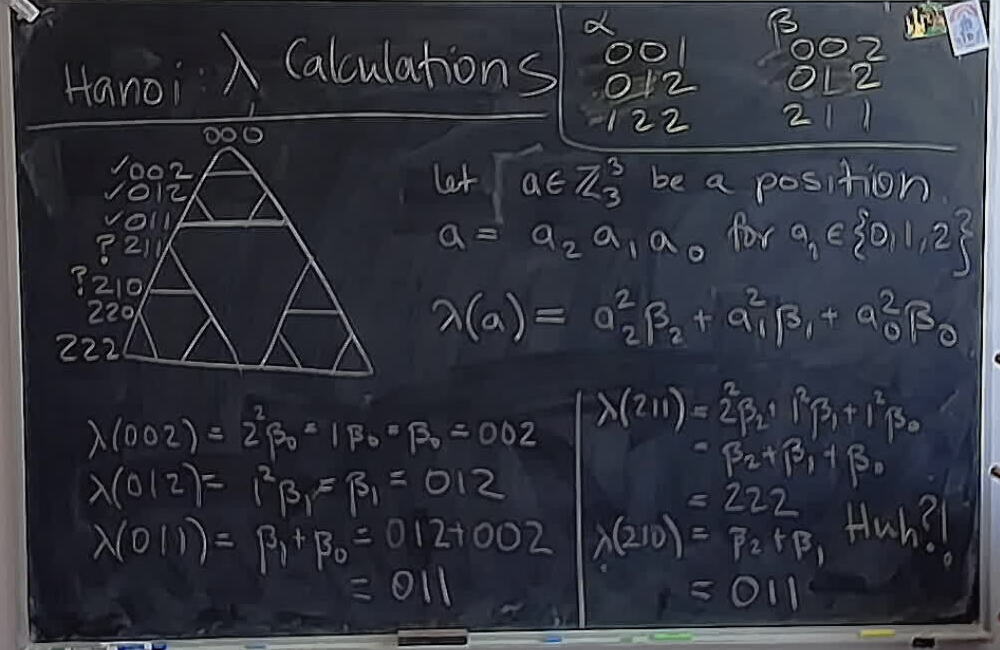 Hanoi: λ Calculations
α
001
012
122
β
002
012
211
000
✓002
✓012
✓011
? 211
? 210
220
222
let a ∈ ℤ₃³ be a position.
a = a₂ a₁ a₀ for a₁ ∈ {0,1,2}
λ(a) = a₂²β₂ + a₁²β₁ + a₀²β₀
λ(002) = 2²β₀ = 1β₀ = β₀ = 002
λ(012) = 1²β₁ = β₁ = 012
λ(011) = β₁ + β₀ = 012+002
= 011
λ(211) = 2²β₂ + 1²β₁ + 1²β₀
= β₂ + β₁ + β₀
= 222
λ(210) = β₂ + β₁
= 011
Huh?!